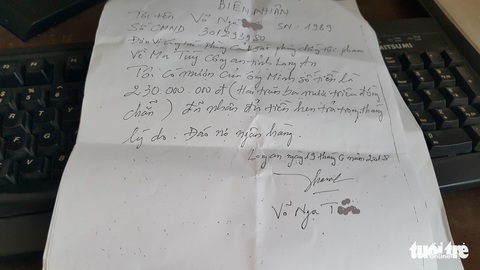 BIÊN NHẬN
Tôi tên Võ Nga SN: 1989
Số CMND 301293980
Đơn vị công tác: Phòng cảnh sát phòng chống tội phạm
Về Ma Túy Công an tỉnh Long An
Tôi có mượn của ông Minh số tiền là
230.000.000đ (Hai trăm ba mươi triệu đồng
chẵn) đã nhận đủ tiền hẹn trả trong tháng
lý do: Đáo nợ ngân hàng.
Long an ngày 19 tháng 6 năm
Võ Nga T
tuổi trẻ
online